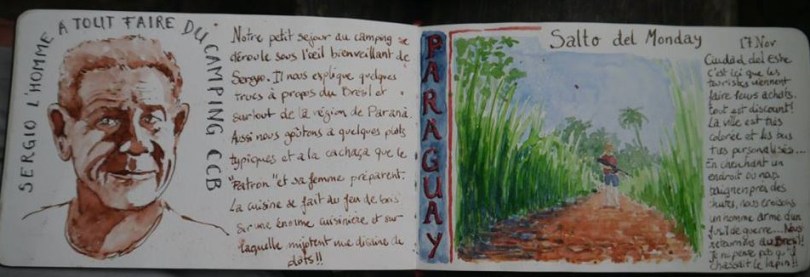 SERGIO L'HOMME A TOUT FAIRE DU CAMPING CCB
Notre petit sejour au camping se
déroule sous l'œil bienveillant de
Sergio. Il nous explique quelques
trucs à propos du Brésil et
surtout de la région de Parana.
Aussi nous goûtons a quelques plats
typiques et a la cachaça que le
"Patron" et sa femme préparent.
La cuisine se fait au feu de bois
sur une énorme cuisinière et sur
laquelle mijotent une dizaine de
plats!!
PARAGUAY
Salto del Monday
17 Nov
Ciudad del Este
C'est ici que les
touristes viennent
faire leurs achats.
tout est discount!
La ville est très
colorée et les bus
très personnalisés...
En cherchant un
endroit ou nous
baigner près des
chutes, nous croisons
un homme armé d'un
fusil de guerre... Nous
retournons au Brésil!
Je ne pense pas qu'il
chassait le lapin!!